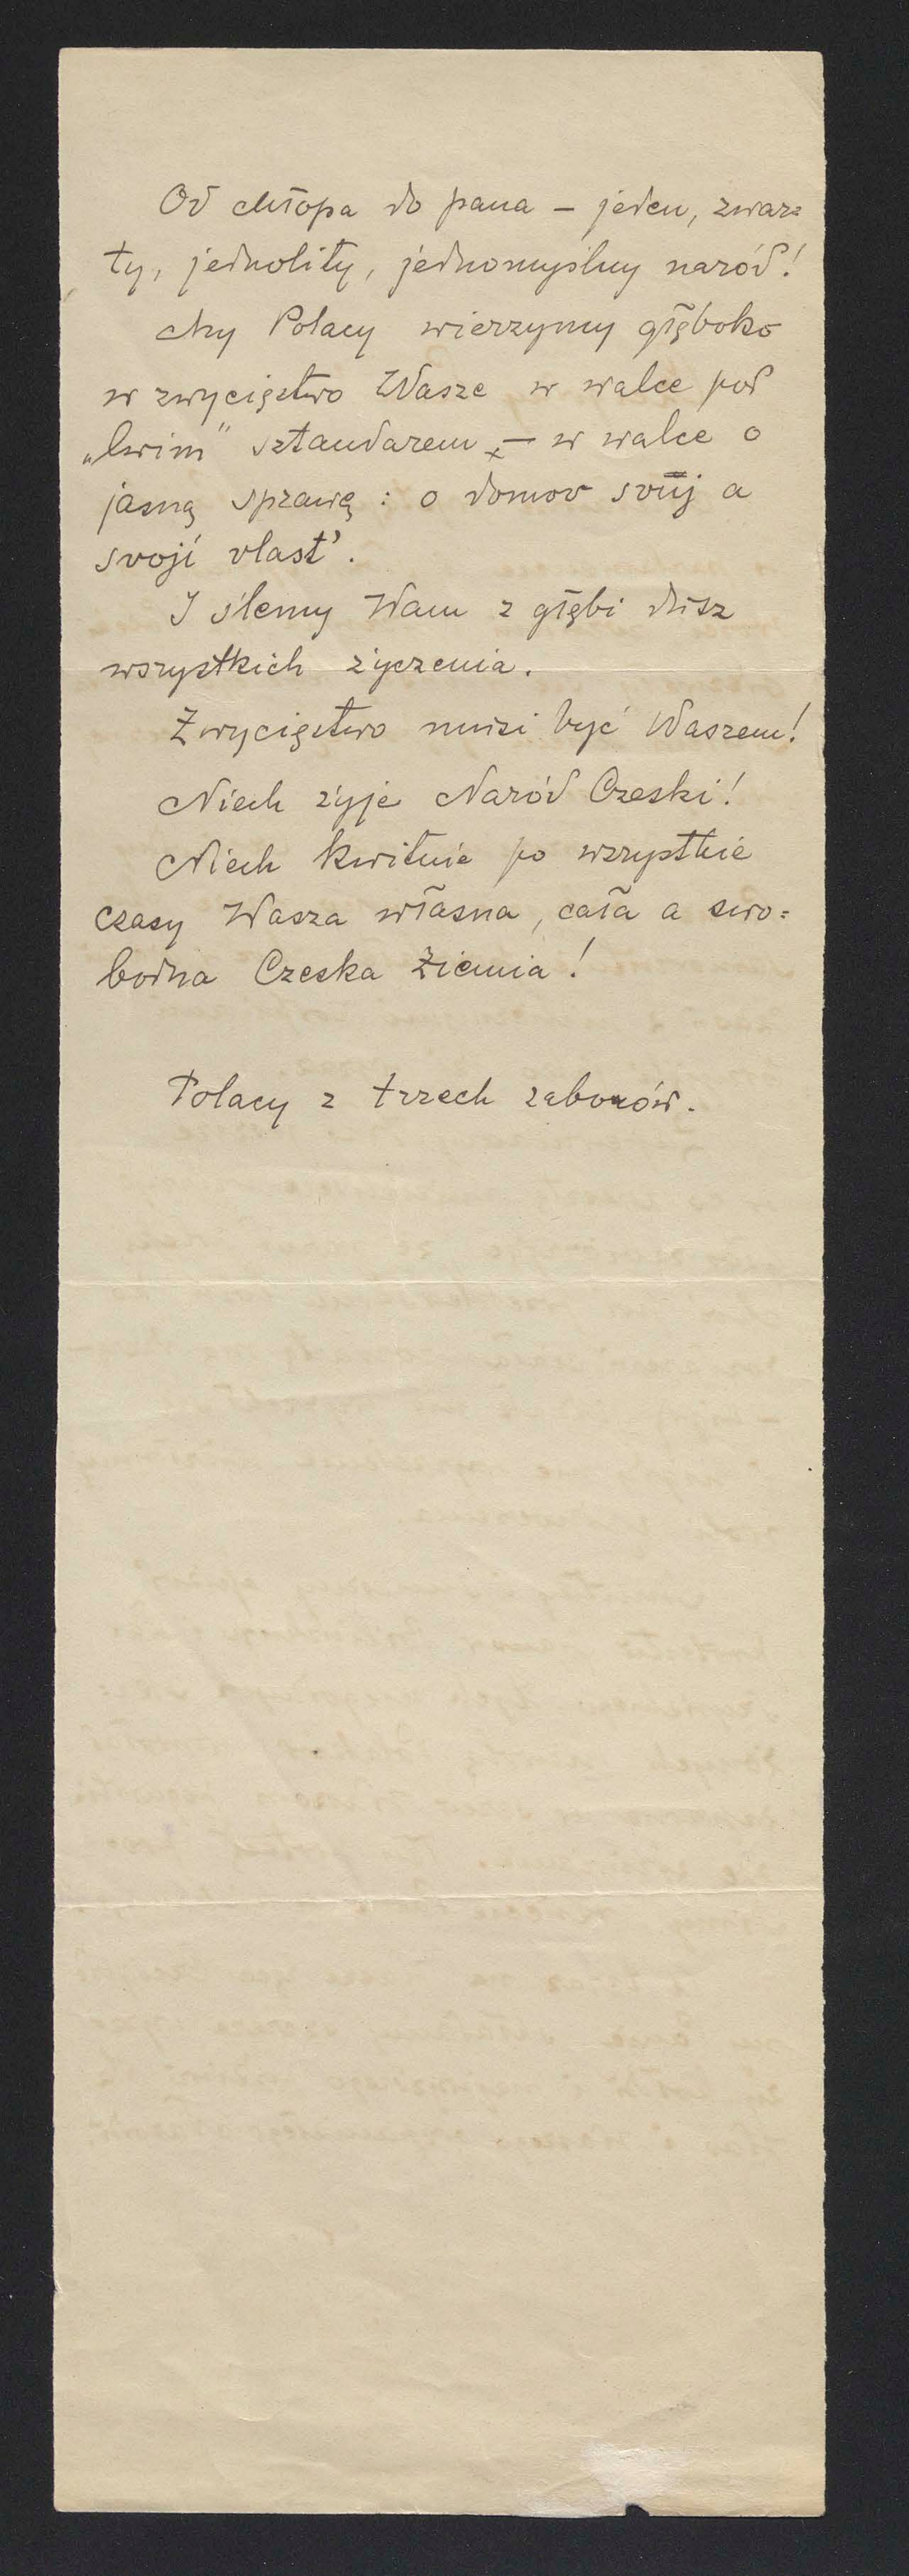 Od chłopa do pana – jeden, zwar=
ty, jednolity, jednomyślny naród!
My Polacy wierzymy głęboko
w zwycięstwo Wasze w walce pod
„lwim” sztandarem – w walce o
jasną sprawę: o domov svůj a
svoji vlast'.
I ślemy Wam z głębi dusz
wszystkich życzenia.
Zwycięstwo musi być Waszem!
Niech żyje Naród Czeski!
Niech kwitnie po wszystkie
czasy Wasza własna, cała a swo=
bodna Czeska Ziemia!
Polacy z trzech zaborów.